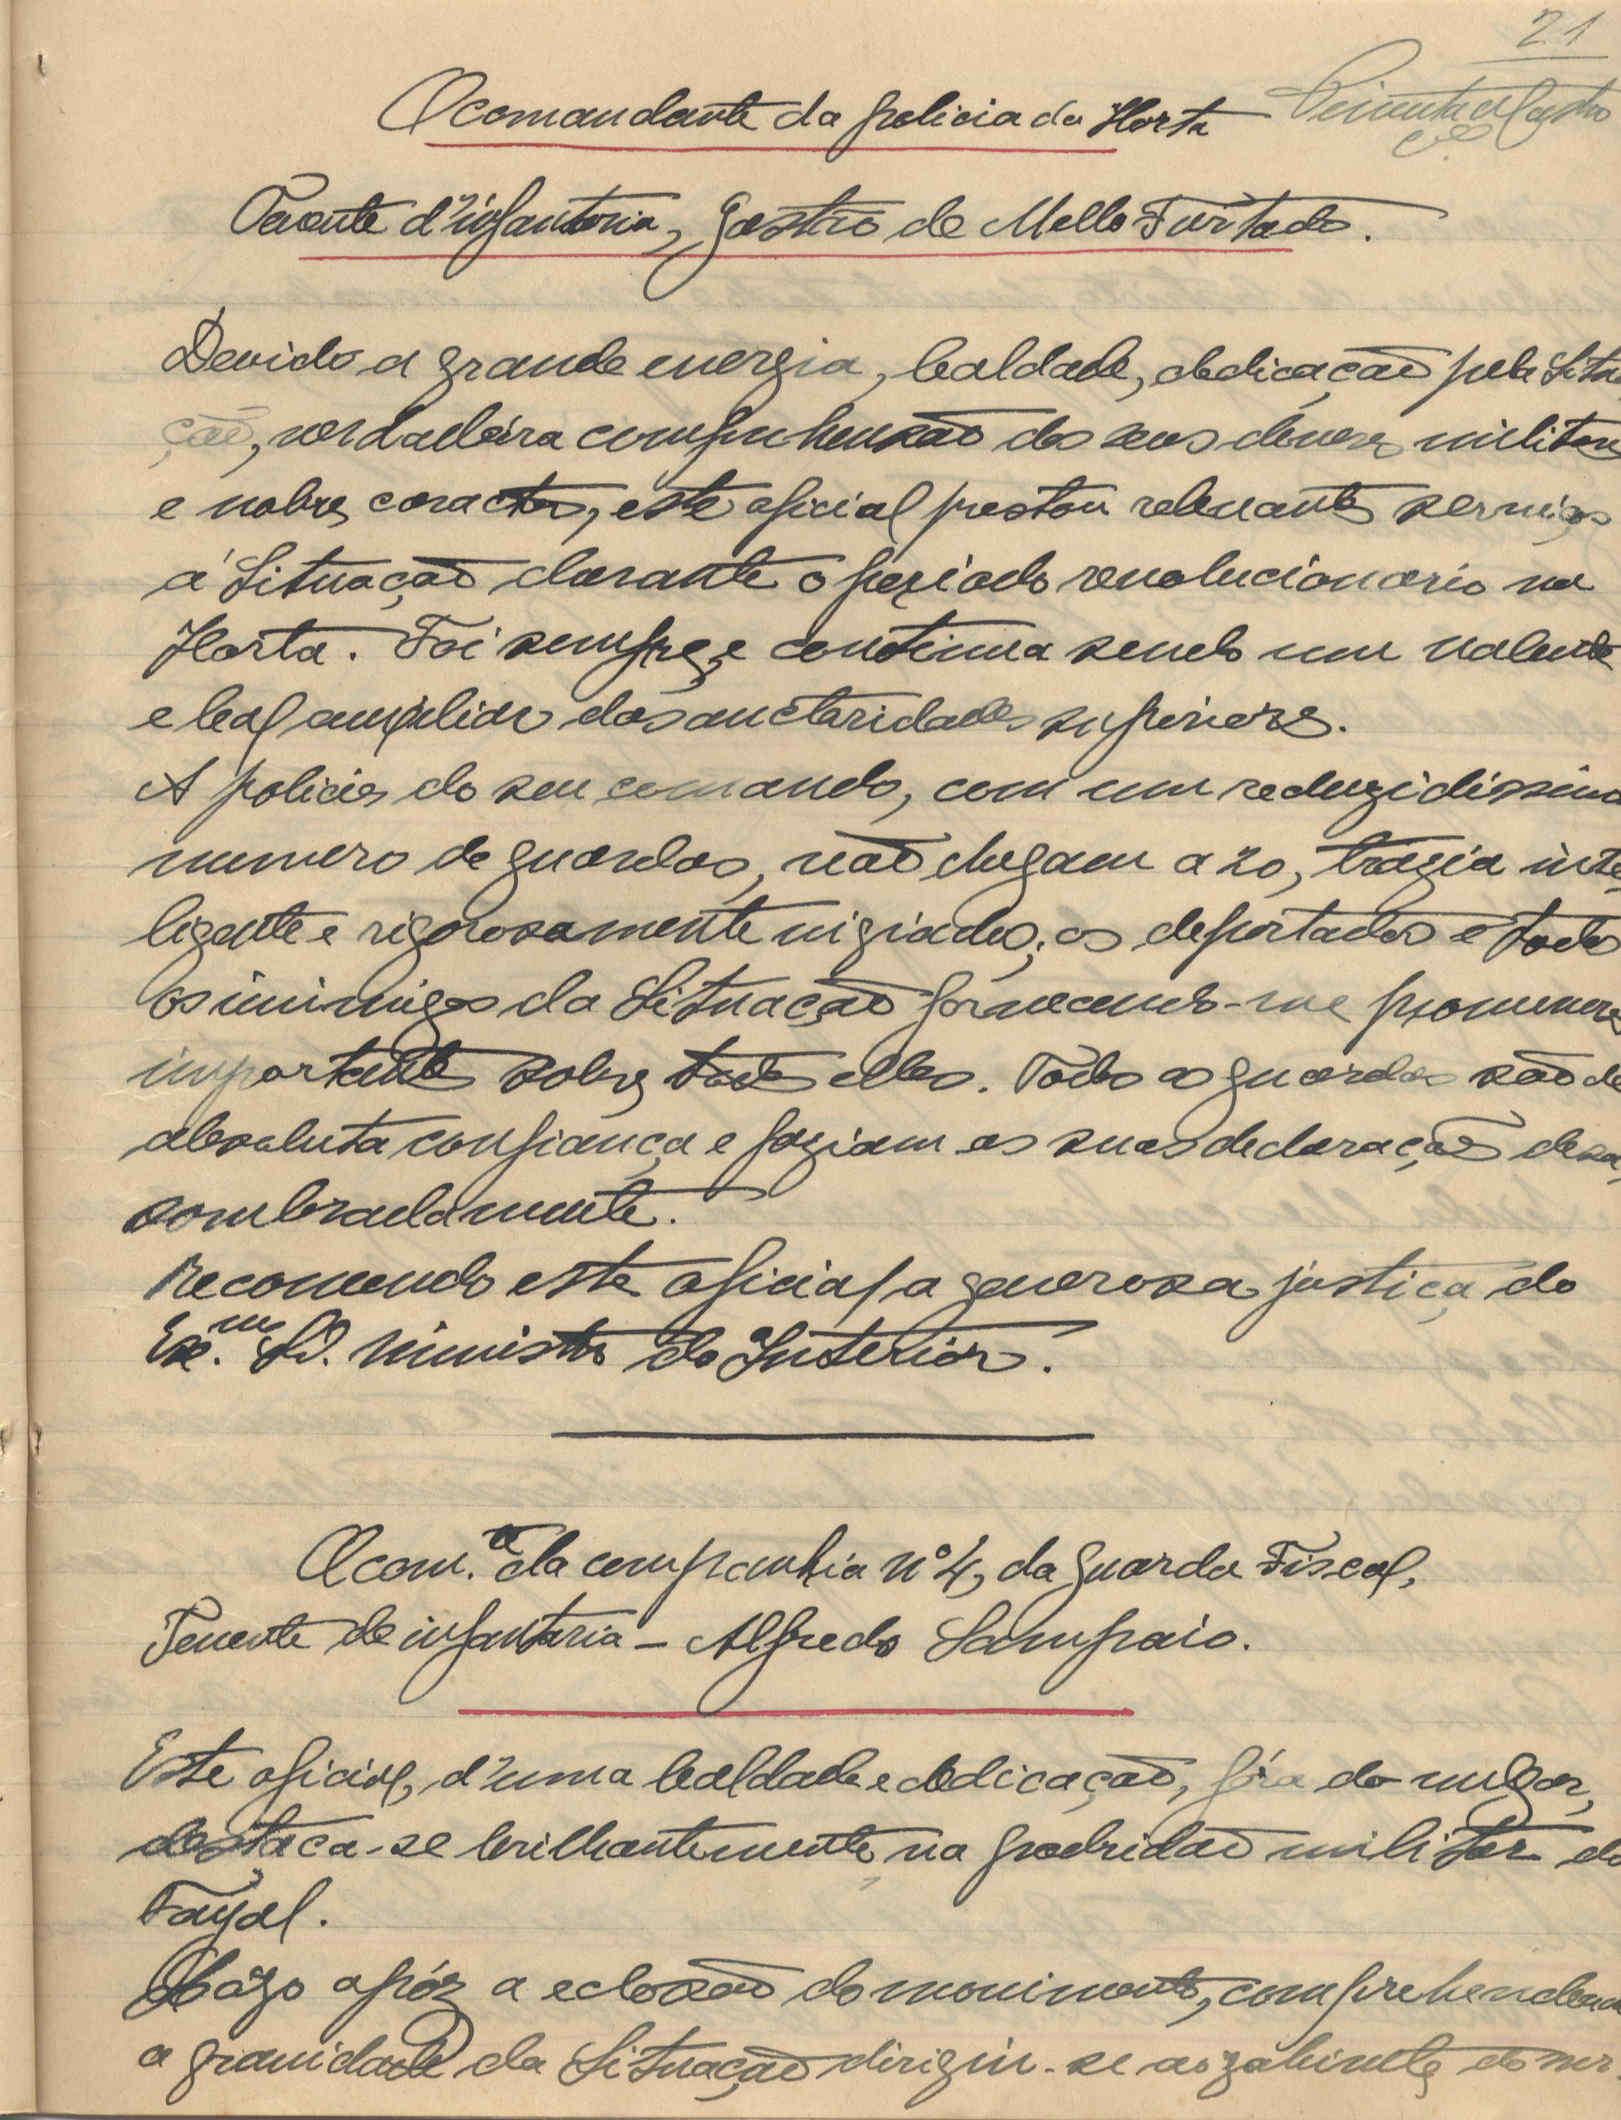 21
O comandante da policia da Horta
Tenente d'infantaria, Gastão de Mello Furtado.
Devido a grande energia, lealdade, dedicação pela Situa
ção, verdadeira comprehensão dos seus deveres militares
e nobre caracter, este oficial prestou relevantes serviços
á Situação durante o periodo revolucionario na
Horta. Foi sempre, e continua sendo um valente
e leal auxiliar das auctoridades superiores.
A policia do seu comando, com um reduzidissimo
numero de guardas, não chegam a 20, trazia inte
ligente e rigorosamente vigiados, os deportados e todos
os inimigos da Situação fornecendo-me promenores
importantes sobre todos elles. Todos os guardas são de
absoluta confiança e faziam as suas declarações desa
sombradamente.
Recomendo este oficial a generosa justiça do
Exmo. Sr. Ministro do Interior.
O com.te da companhia nº 4, da guarda Fiscal,
Tenente de infantaria - Alfredo Sampaio.
Este oficial, d'uma lealdade e dedicação, fóra do vulgar,
destaca-se brilhantemente, na podridão militar do
Fayal.
Logo apóz a eclosão do movimento, comprehendendo
a gravidade da Situação dirigiu-se ao gabinete do